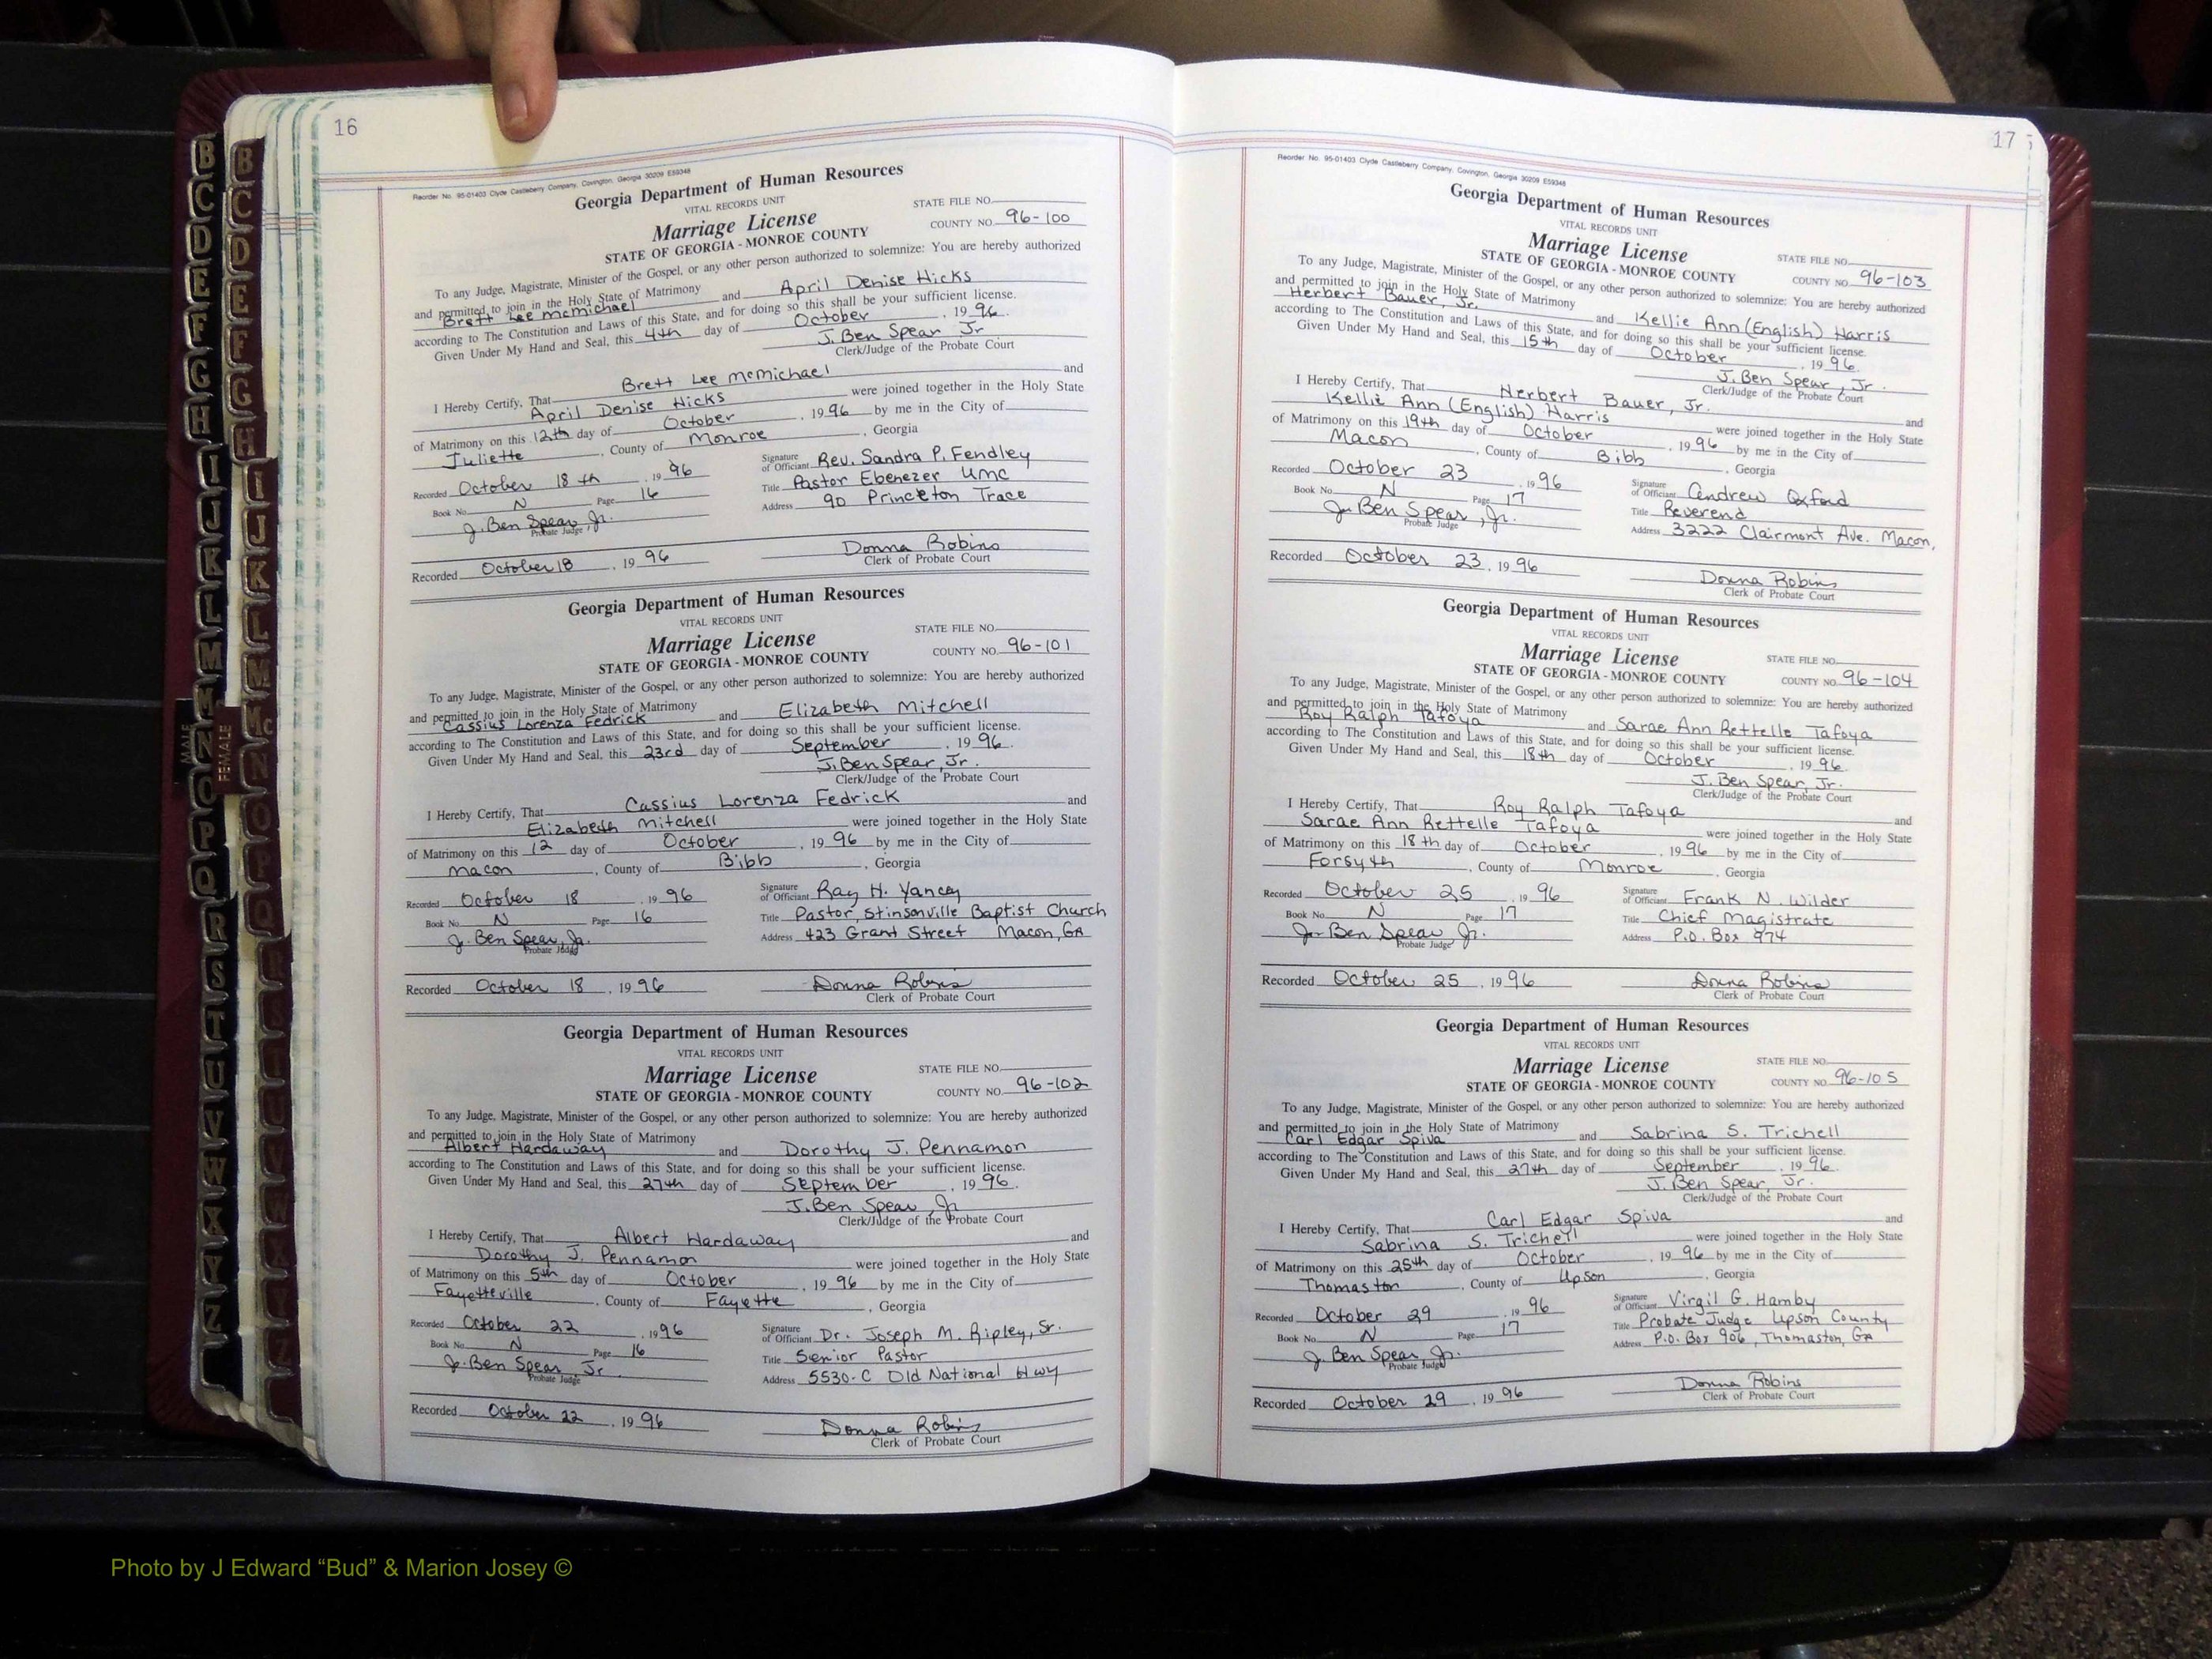 16
Reorder No. 95-01403 Clyde Castleberry Company, Covington, Georgia 30209 E59348
Georgia Department of Human Resources
VITAL RECORDS UNIT
Marriage License
STATE OF GEORGIA - MONROE COUNTY
STATE FILE NO.
COUNTY NO. 96-100
To any Judge, Magistrate, Minister of the Gospel, or any other person authorized to solemnize: You are hereby authorized
and permitted to join in the Holy State of Matrimony
Brett Lee McMichael and April Denise Hicks
according to The Constitution and Laws of this State, and for doing so this shall be your sufficient license.
Given Under My Hand and Seal, this 4th day of October, 19 96.
J. Ben Spear Jr
Clerk/Judge of the Probate Court
I Hereby Certify, That Brett Lee McMichael and
April Denise Hicks were joined together in the Holy State
of Matrimony on this 12th day of October, 19 96 by me in the City of
Juliette, County of Monroe, Georgia
Recorded October 18th, 19 96
Book No. N Page 16
J. Ben Spear, Jr.
Probate Judge
Signature of Officiant Rev. Sandra P. Fendley
Title Pastor Ebenezer UMC
Address 90 Princeton Trace
Recorded October 18, 19 96
Donna Robins
Clerk of Probate Court
Georgia Department of Human Resources
VITAL RECORDS UNIT
Marriage License
STATE OF GEORGIA - MONROE COUNTY
STATE FILE NO.
COUNTY NO. 96-101
To any Judge, Magistrate, Minister of the Gospel, or any other person authorized to solemnize: You are hereby authorized
and permitted to join in the Holy State of Matrimony
Cassius Lorenza Fedrick and Elizabeth Mitchell
according to The Constitution and Laws of this State, and for doing so this shall be your sufficient license.
Given Under My Hand and Seal, this 23rd day of September, 19 96.
J. Ben Spear, Jr.
Clerk/Judge of the Probate Court
I Hereby Certify, That Cassius Lorenza Fedrick and
Elizabeth Mitchell were joined together in the Holy State
of Matrimony on this 12 day of October, 19 96 by me in the City of
Macon, County of Bibb, Georgia
Recorded October 18, 19 96
Book No. N Page 16
J. Ben Spear, Jr.
Probate Judge
Signature of Officiant Ray H. Yancey
Title Pastor, Stinsonville Baptist Church
Address 423 Grant Street Macon, GA
Recorded October 18, 19 96
Donna Robins
Clerk of Probate Court
Georgia Department of Human Resources
VITAL RECORDS UNIT
Marriage License
STATE OF GEORGIA - MONROE COUNTY
STATE FILE NO.
COUNTY NO. 96-102
To any Judge, Magistrate, Minister of the Gospel, or any other person authorized to solemnize: You are hereby authorized
and permitted to join in the Holy State of Matrimony
Albert Hardaway and Dorothy J. Pennamon
according to The Constitution and Laws of this State, and for doing so this shall be your sufficient license.
Given Under My Hand and Seal, this 27th day of September, 19 96.
J. Ben Spear, Jr
Clerk/Judge of the Probate Court
I Hereby Certify, That Albert Hardaway and
Dorothy J. Pennamon were joined together in the Holy State
of Matrimony on this 5th day of October, 19 96 by me in the City of
Fayetteville, County of Fayette, Georgia
Recorded October 22, 19 96
Book No. N Page 16
J. Ben Spear, Jr.
Probate Judge
Signature of Officiant Dr. Joseph M. Ripley, Sr.
Title Senior Pastor
Address 5530-C Old National Hwy
Recorded October 22, 19 96
Donna Robins
Clerk of Probate Court
17
Reorder No. 95-01403 Clyde Castleberry Company, Covington, Georgia 30209 E59348
Georgia Department of Human Resources
VITAL RECORDS UNIT
Marriage License
STATE OF GEORGIA - MONROE COUNTY
STATE FILE NO.
COUNTY NO. 96-103
To any Judge, Magistrate, Minister of the Gospel, or any other person authorized to solemnize: You are hereby authorized
and permitted to join in the Holy State of Matrimony
Herbert Bauer, Jr. and Kellie Ann (English) Harris
according to The Constitution and Laws of this State, and for doing so this shall be your sufficient license.
Given Under My Hand and Seal, this 15th day of October, 19 96.
J. Ben Spear, Jr.
Clerk/Judge of the Probate Court
I Hereby Certify, That Herbert Bauer, Jr. and
Kellie Ann (English) Harris were joined together in the Holy State
of Matrimony on this 19th day of October, 19 96 by me in the City of
Macon, County of Bibb, Georgia
Recorded October 23, 19 96
Book No. N Page 17
J. Ben Spear, Jr.
Probate Judge
Signature of Officiant Andrew Oxford
Title Reverend
Address 3222 Clairmont Ave. Macon,
Recorded October 23, 19 96
Donna Robins
Clerk of Probate Court
Georgia Department of Human Resources
VITAL RECORDS UNIT
Marriage License
STATE OF GEORGIA - MONROE COUNTY
STATE FILE NO.
COUNTY NO. 96-104
To any Judge, Magistrate, Minister of the Gospel, or any other person authorized to solemnize: You are hereby authorized
and permitted to join in the Holy State of Matrimony
Roy Ralph Tafoya and Sarae Ann Rettelle Tafoya
according to The Constitution and Laws of this State, and for doing so this shall be your sufficient license.
Given Under My Hand and Seal, this 18th day of October, 19 96.
J. Ben Spear, Jr.
Clerk/Judge of the Probate Court
I Hereby Certify, That Roy Ralph Tafoya and
Sarae Ann Rettelle Tafoya were joined together in the Holy State
of Matrimony on this 18th day of October, 19 96 by me in the City of
Forsyth, County of Monroe, Georgia
Recorded October 25, 19 96
Book No. N Page 17
J. Ben Spear Jr.
Probate Judge
Signature of Officiant Frank N. Wilder
Title Chief Magistrate
Address P.O. Box 974
Recorded October 25, 19 96
Donna Robins
Clerk of Probate Court
Georgia Department of Human Resources
VITAL RECORDS UNIT
Marriage License
STATE OF GEORGIA - MONROE COUNTY
STATE FILE NO.
COUNTY NO. 96-105
To any Judge, Magistrate, Minister of the Gospel, or any other person authorized to solemnize: You are hereby authorized
and permitted to join in the Holy State of Matrimony
Carl Edgar Spiva and Sabrina S. Trichell
according to The Constitution and Laws of this State, and for doing so this shall be your sufficient license.
Given Under My Hand and Seal, this 27th day of September, 19 96.
J. Ben Spear, Jr.
Clerk/Judge of the Probate Court
I Hereby Certify, That Carl Edgar Spiva and
Sabrina S. Trichell were joined together in the Holy State
of Matrimony on this 25th day of October, 19 96 by me in the City of
Thomaston, County of Upson, Georgia
Recorded October 29, 19 96
Book No. N Page 17
J. Ben Spear Jr.
Probate Judge
Signature of Officiant Virgil G. Hamby
Title Probate Judge Upson County
Address P.O. Box 906, Thomaston, GA
Recorded October 29, 19 96
Donna Robins
Clerk of Probate Court
MALE
FEMALE
Photo by J Edward “Bud” & Marion Josey ©